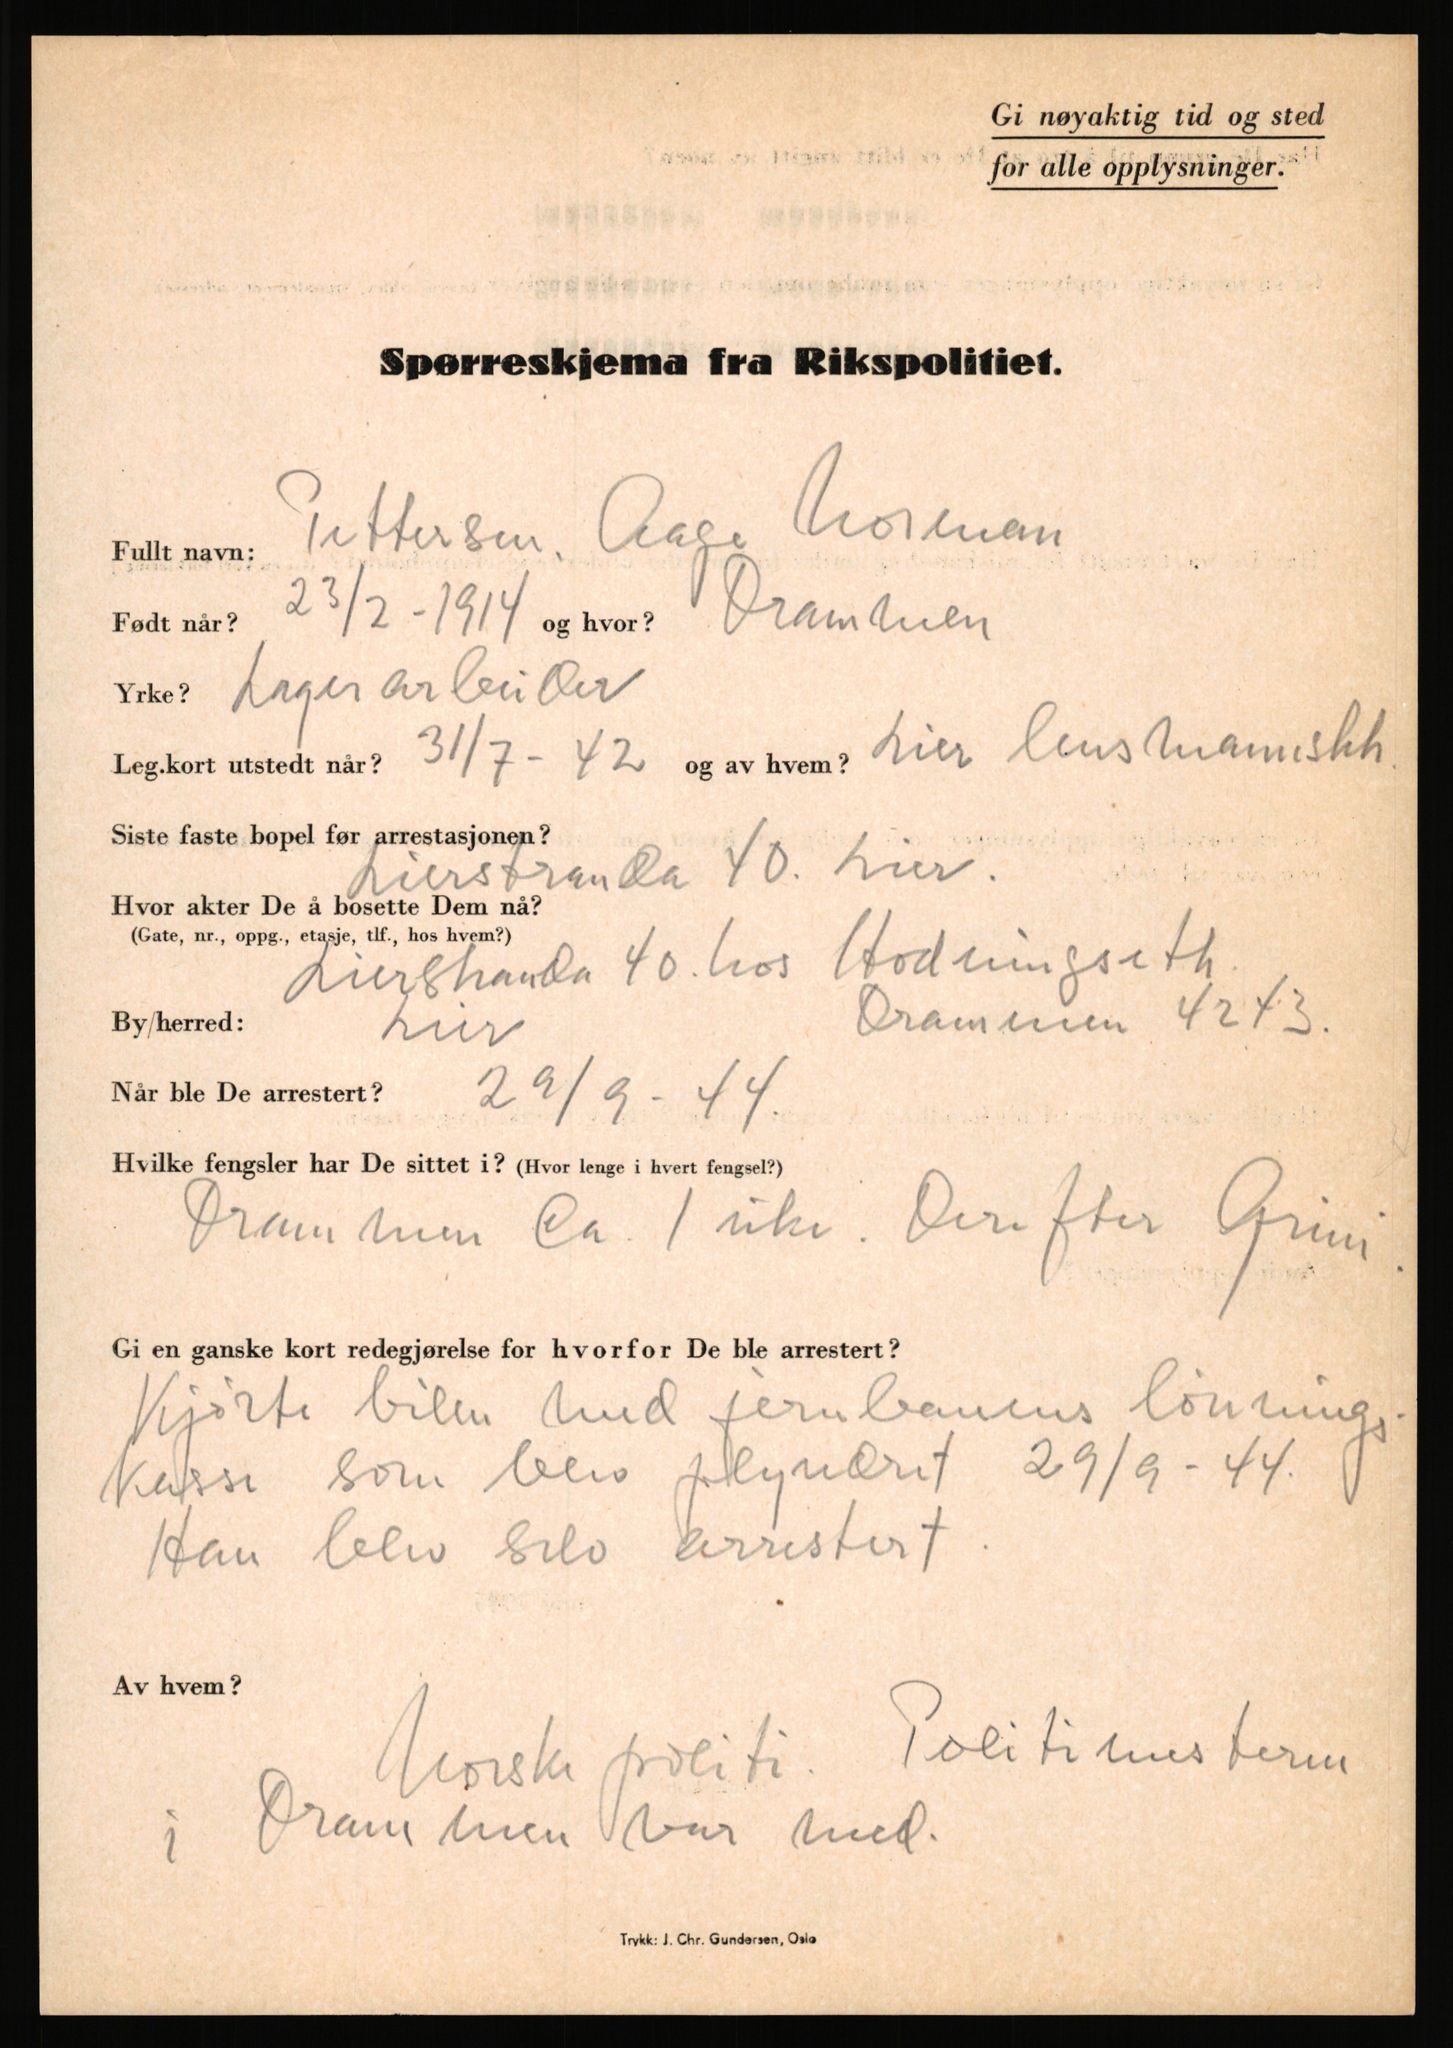 Gi nøyaktig tid og sted
for alle opplysninger.
Spørreskjema fra Rikspolitiet.
Fullt navn: Pettersen, Aage Norman
Født når? 23/2-1914 og hvor? Drammen
Yrke? Lagerarbeider
Leg.kort utstedt når? 31/7-42 og av hvem? Lier lensmannskk.
Siste faste bopel før arrestasjonen?
Lierstranda 40. Lier.
Hvor akter De å bosette Dem nå?
(Gate, nr., oppg., etasje, tlf., hos hvem?)
Lierstranda 40. hos Hodningseth.
By/herred: Lier Drammen 4243.
Når ble De arrestert? 29/9-44.
Hvilke fengsler har De sittet i? (Hvor lenge i hvert fengsel?)
Drammen Ca. 1 uke. Derefter Grini.
Gi en ganske kort redegjørelse for hvorfor De ble arrestert?
Kjørte bilen med jernbanens lønnings-
kasse som blev plyndret 29/9-44.
Han blev selv arrestert.
Av hvem?
Norsk politi. Politimesteren
i Drammen var med.
Trykk: J. Chr. Gundersen, Oslo